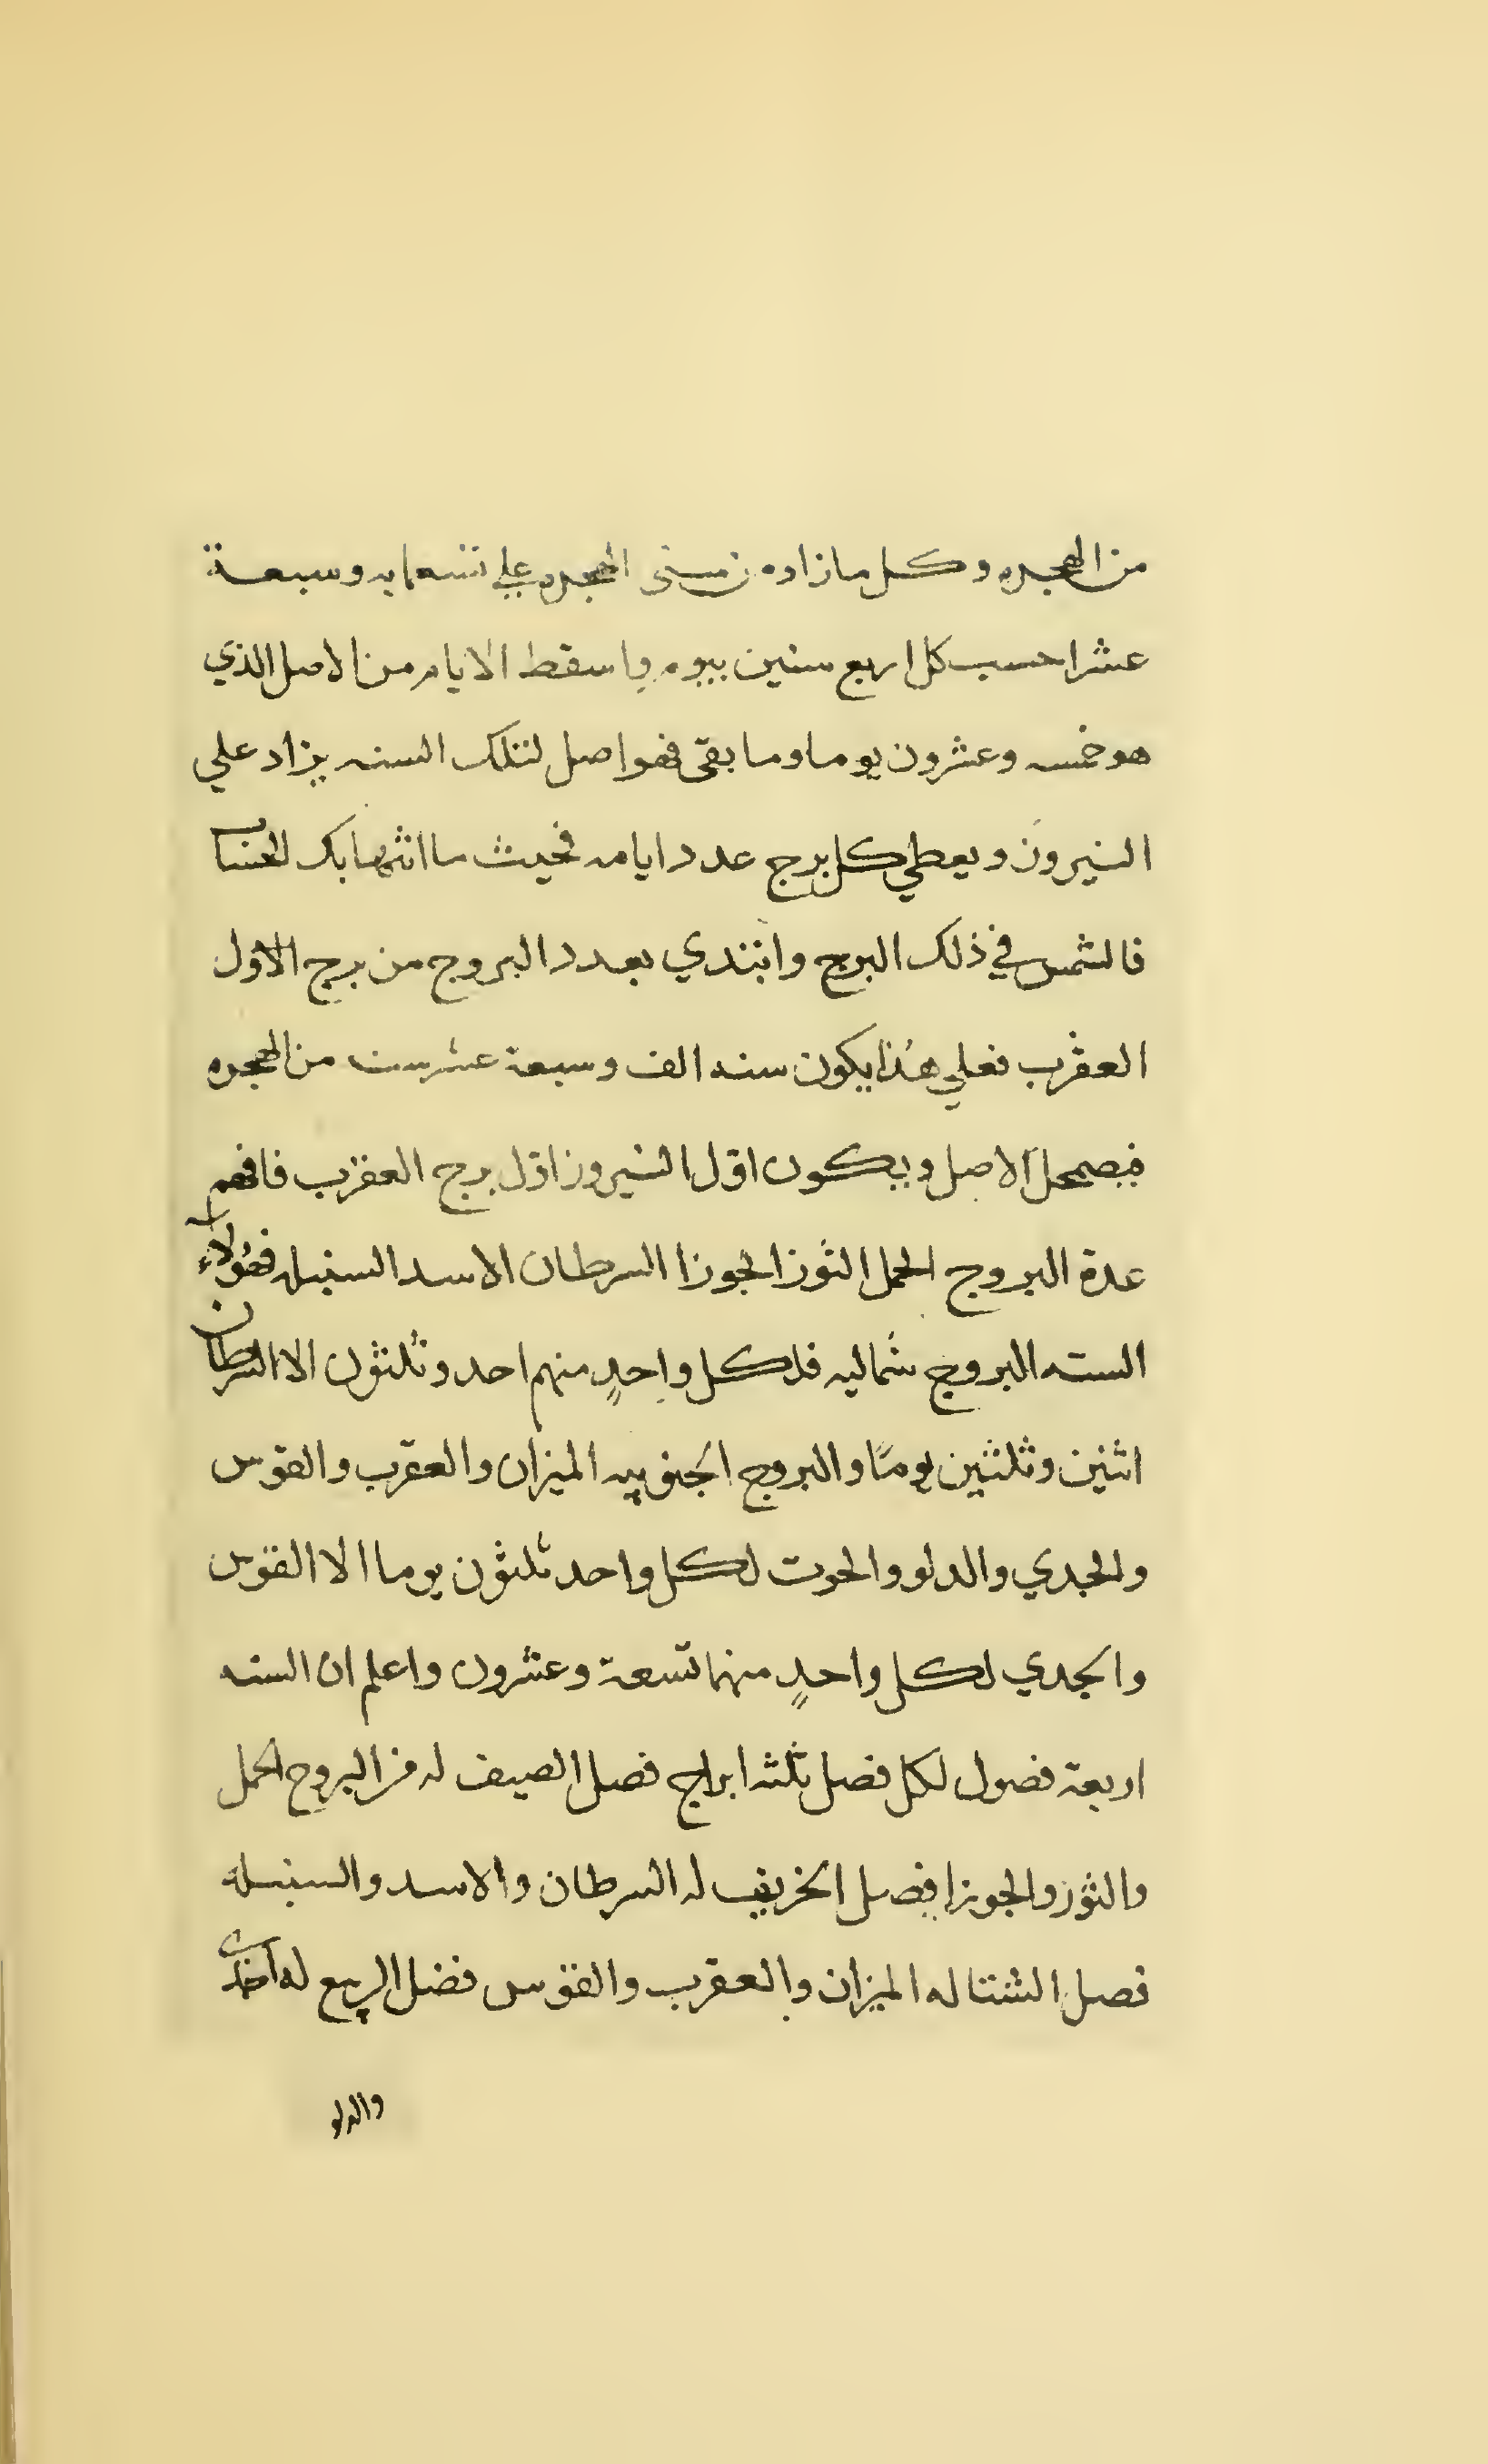 من الهجره وكل ما زاد من سنى الهجره علي تسعمايه وسبعة
عشرا حسب كل اربع سنين بيوم واسقط الايام من الاصل الذي
هو خمسه وعشرون يوما وما بقي فهو اصل لتلك السنه يزاد علي
النيروز ويعطي كل برج عدد ايامه فحيث ما انتهابك الحساب
فالشمس في ذلك البرج وابتدي بعدد البروج من برج الاول
العقرب فعلي هذا يكون سنه الف وسبعة عشر سنه من الهجره
فيضمحل الاصل ويكون اوّل النيروز اوّل برج العقرب فافهم
عدة البروج الحمل الثور الجوزا السرطان الاسد السنبله فهولاء
السته البروج شماليه فلكل واحدٍ منهم احد وثلثون الا السرطان
اثنين وثلثين يومًا والبروج الجنوبيه الميزان والعقرب والقوس
والجدي والدلو والحوت لكل واحد ثلثون يوما الا القوس
والجدي لكل واحدٍ منهما تسعة وعشرون واعلم ان السنه
اربعة فصول لكل فصل ثلثه ابراج فصل الصيف له من البروج الحمل
والثور والجوزا فصل الخريف له السرطان والاسد والسنبله
فصل الشتا له الميزان والعقرب والقوس فضل الربيع له الجدي
والدلو